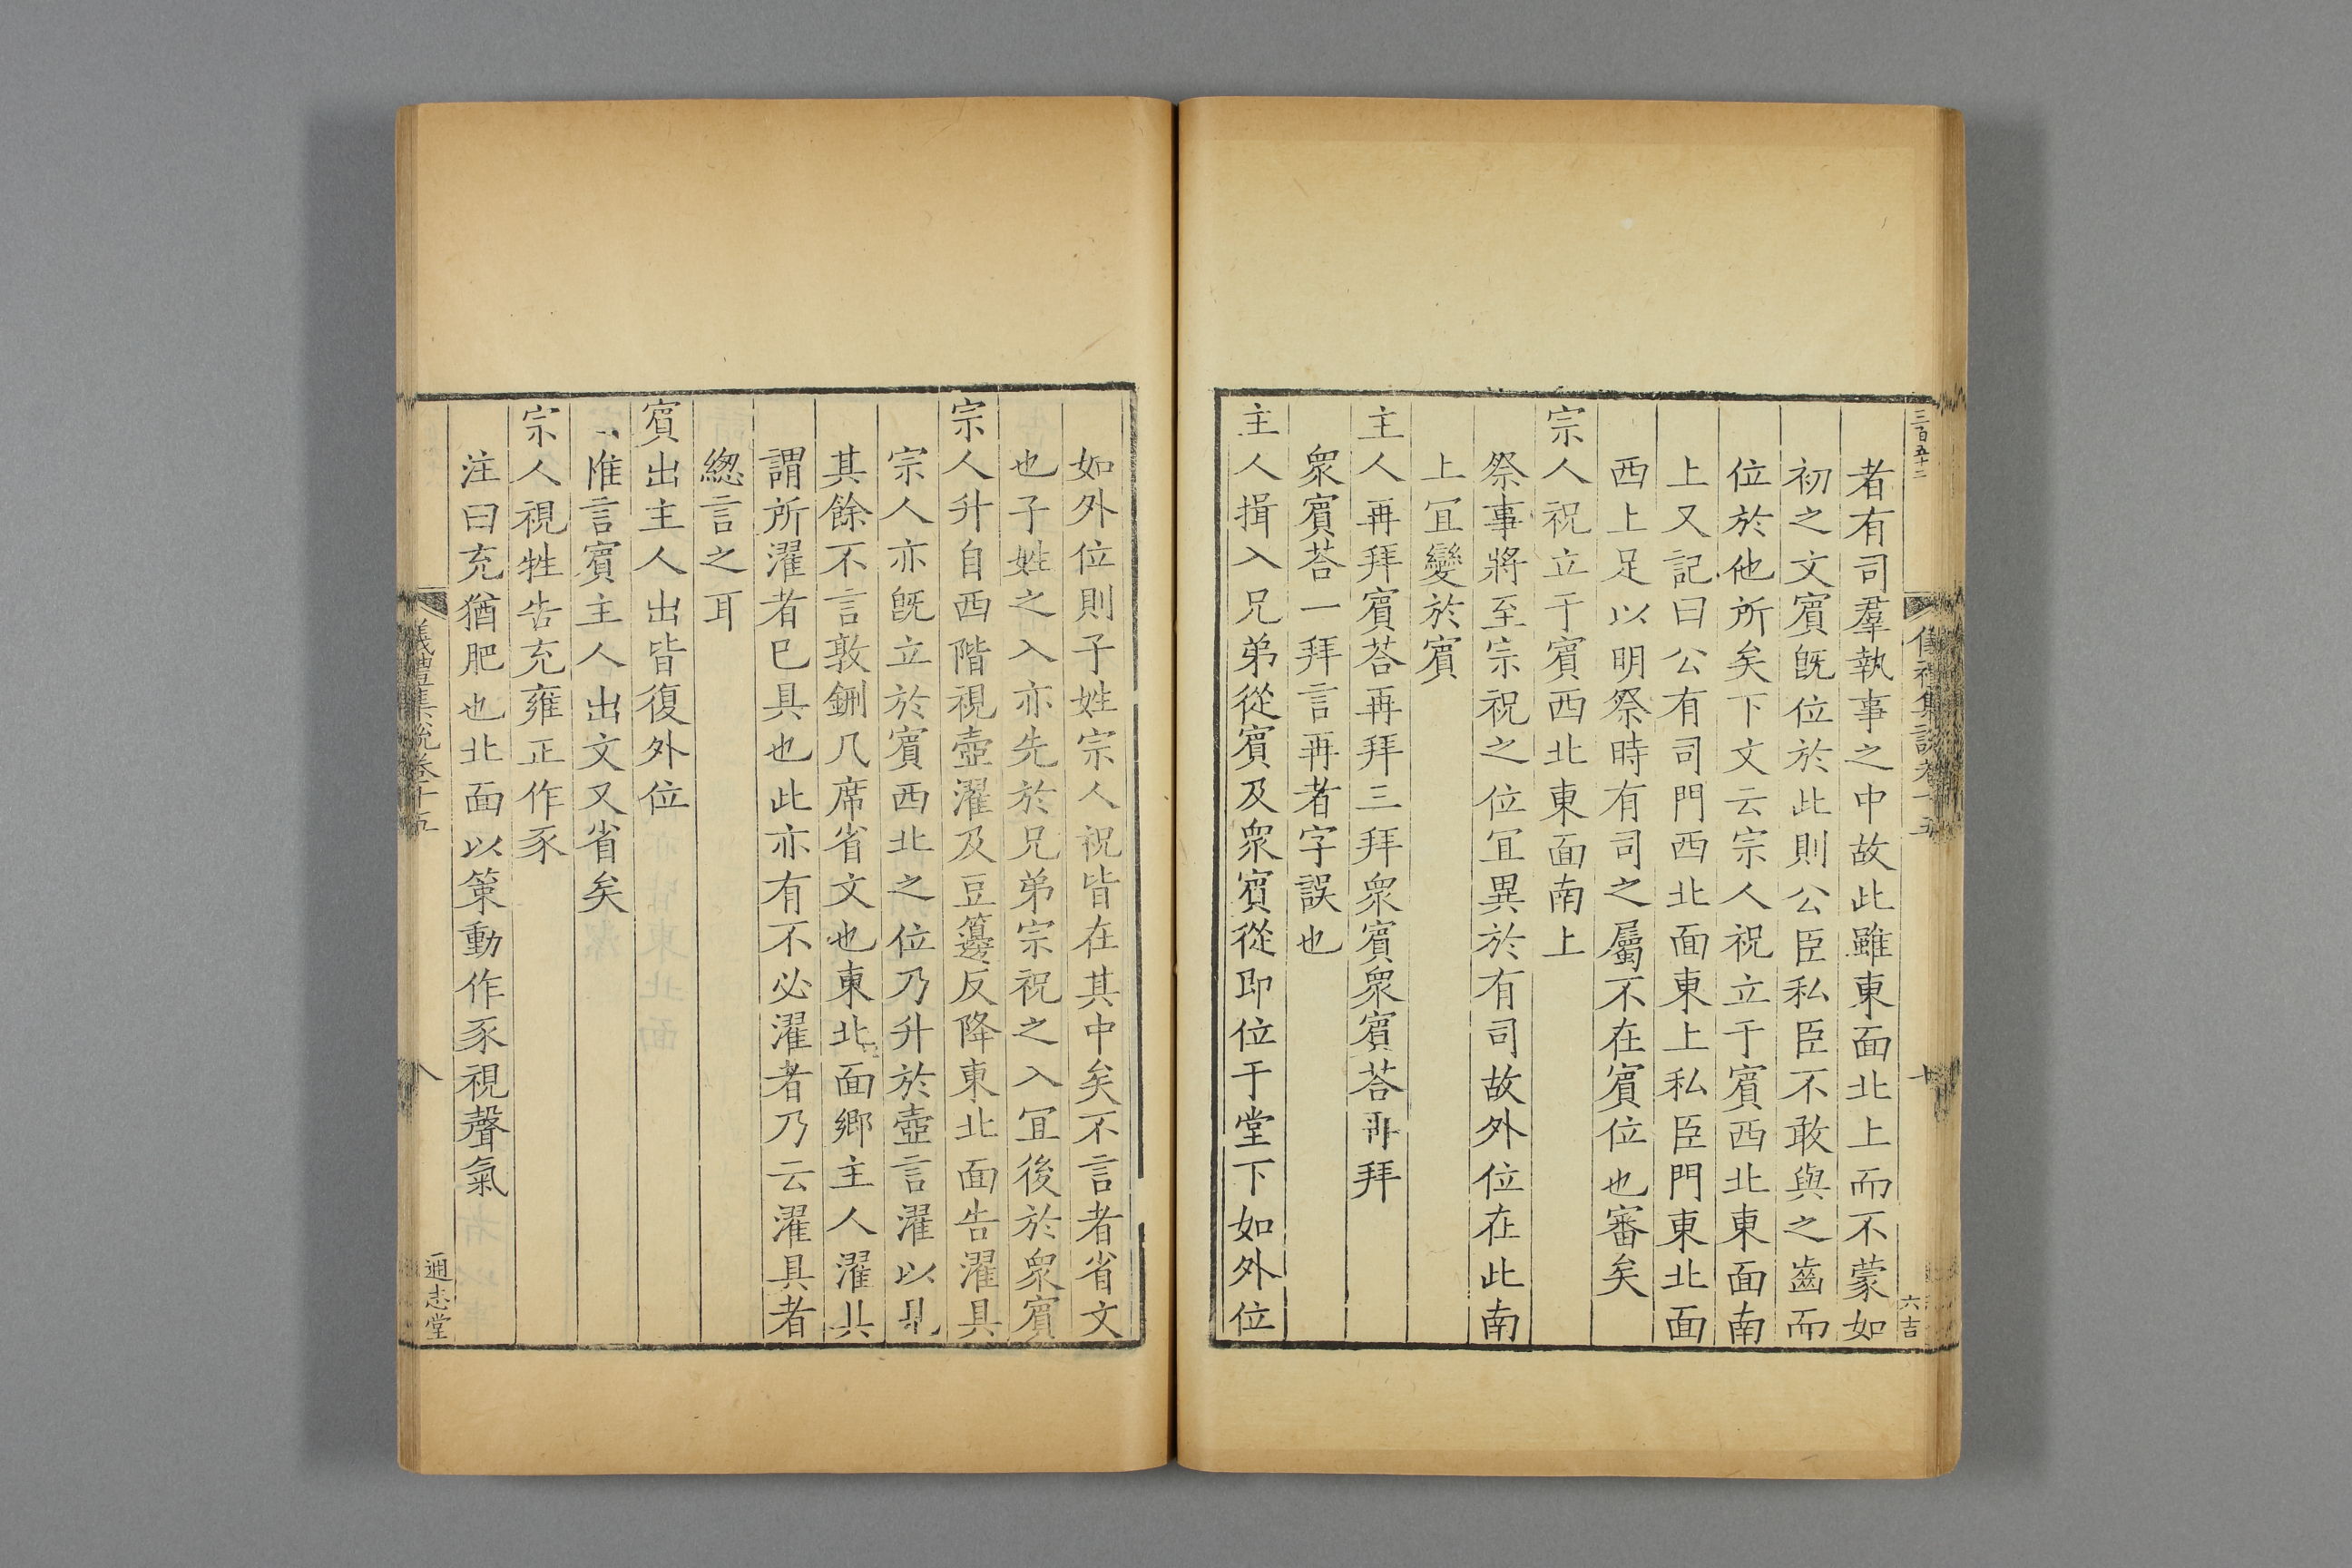 三百五十二
儀禮集說卷十五
六吉
者有司羣執事之中故此雖東面北上而不蒙如
初之文賓旣位於此則公臣私臣不敢與之齒而
位於他所矣下文云宗人祝立于賓西北東面南
上又記曰公有司門西北面東上私臣門東北面
西上足以明祭時有司之屬不在賓位也審矣
宗人祝立于賓西北東面南上
祭事將至宗祝之位冝異於有司故外位在此南
上冝變於賓
主人再拜賓荅再拜三拜眾賓眾賓荅再拜
眾賓荅一拜言再者字誤也
主人揖入兄弟從賓及眾賓從即位于堂下如外位
如外位則子姓宗人祝皆在其中矣不言者省文
也子姓之入亦先於兄弟宗祝之入冝後於眾賓
宗人升自西階視壺濯及豆籩反降東北面告濯具
宗人亦旣立於賓西北之位乃升於壺言濯以見
其餘不言敦鉶几席省文也東北面鄉主人濯具
謂所濯者已具也此亦有不必濯者乃云濯具者
緫言之耳
賓出主人出皆復外位
惟言賓主人出文又省矣
宗人視牲告充雍正作豕
注曰充猶肥也北面以策動作豕視聲氣
儀禮集說卷十五
八
通志堂